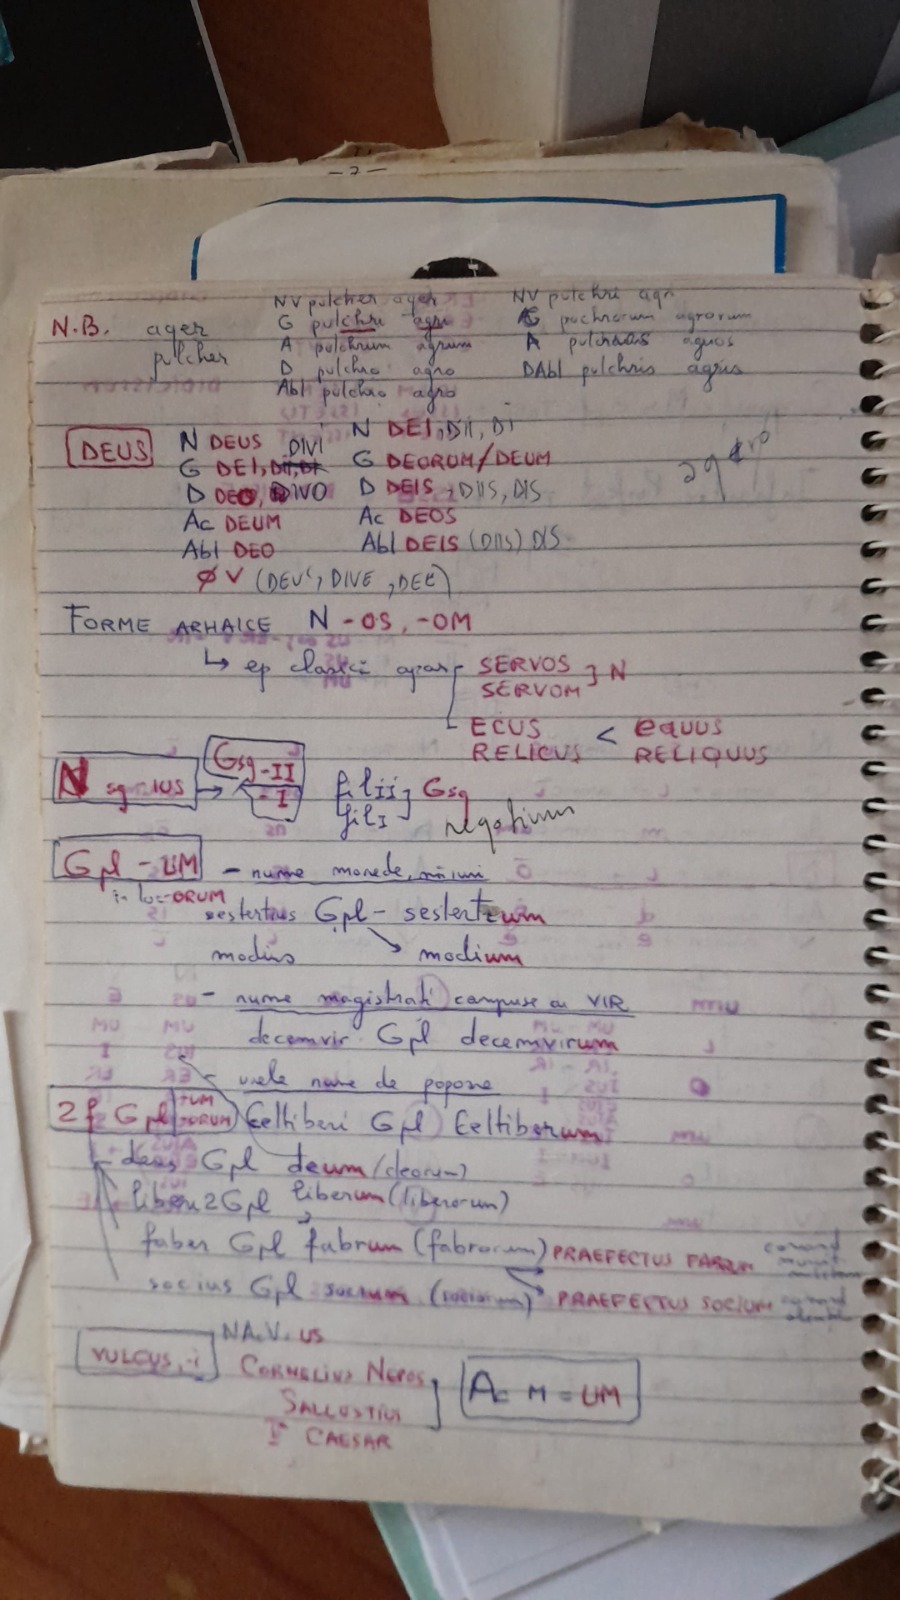 - 7 -
NV pulcher ager NV pulchri agri
N.B. ager G pulchri agri G puchrorum agrorum
pulcher A pulchrum agrum A pulchros agros
D pulchro agro DAbl pulchris agris
Abl pulchro agro
DEUS N DEUS DIVI N DEI, DII, DI
G DEI, DII, DI G DEORUM/DEUM
D DEO, DIVO D DEIS, DIIS, DIS
Ac DEUM Ac DEOS
Abl DEO Abl DEIS (DIIS) DIS
Ø V (DEUS, DIVE, DEE)
FORME ARHAICE N -OS, -OM
↳ ep clasică apar SERVOS } N
SERVOM
ECUS < EQUUS
RELICUS RELIQUUS
N sg -IUS → Gsg -II filII ] Gsg
-I filI negotium
Gpl -UM - nume monede, măsuri
in loc -ORUM
sestertius Gpl - sestertium
modius → modium
- nume magistrați compuse cu VIR
decemvir Gpl decemvirum
- unele nume de popoare
2f Gpl -UM -ORUM Celtiberi Gpl Celtiberum
deus Gpl deum/deorum)
liberi 2Gpl liberum (liberorum)
faber Gpl fabrum (fabrorum) PRAEFECTUS FABRUM
socius Gpl socium (sociorum) PRAEFECTUS SOCIUM
VULGUS, -i NA.V. US
CORNELIUS NEPOS
SALLUSTIUS ] Ac M = UM
CAESAR